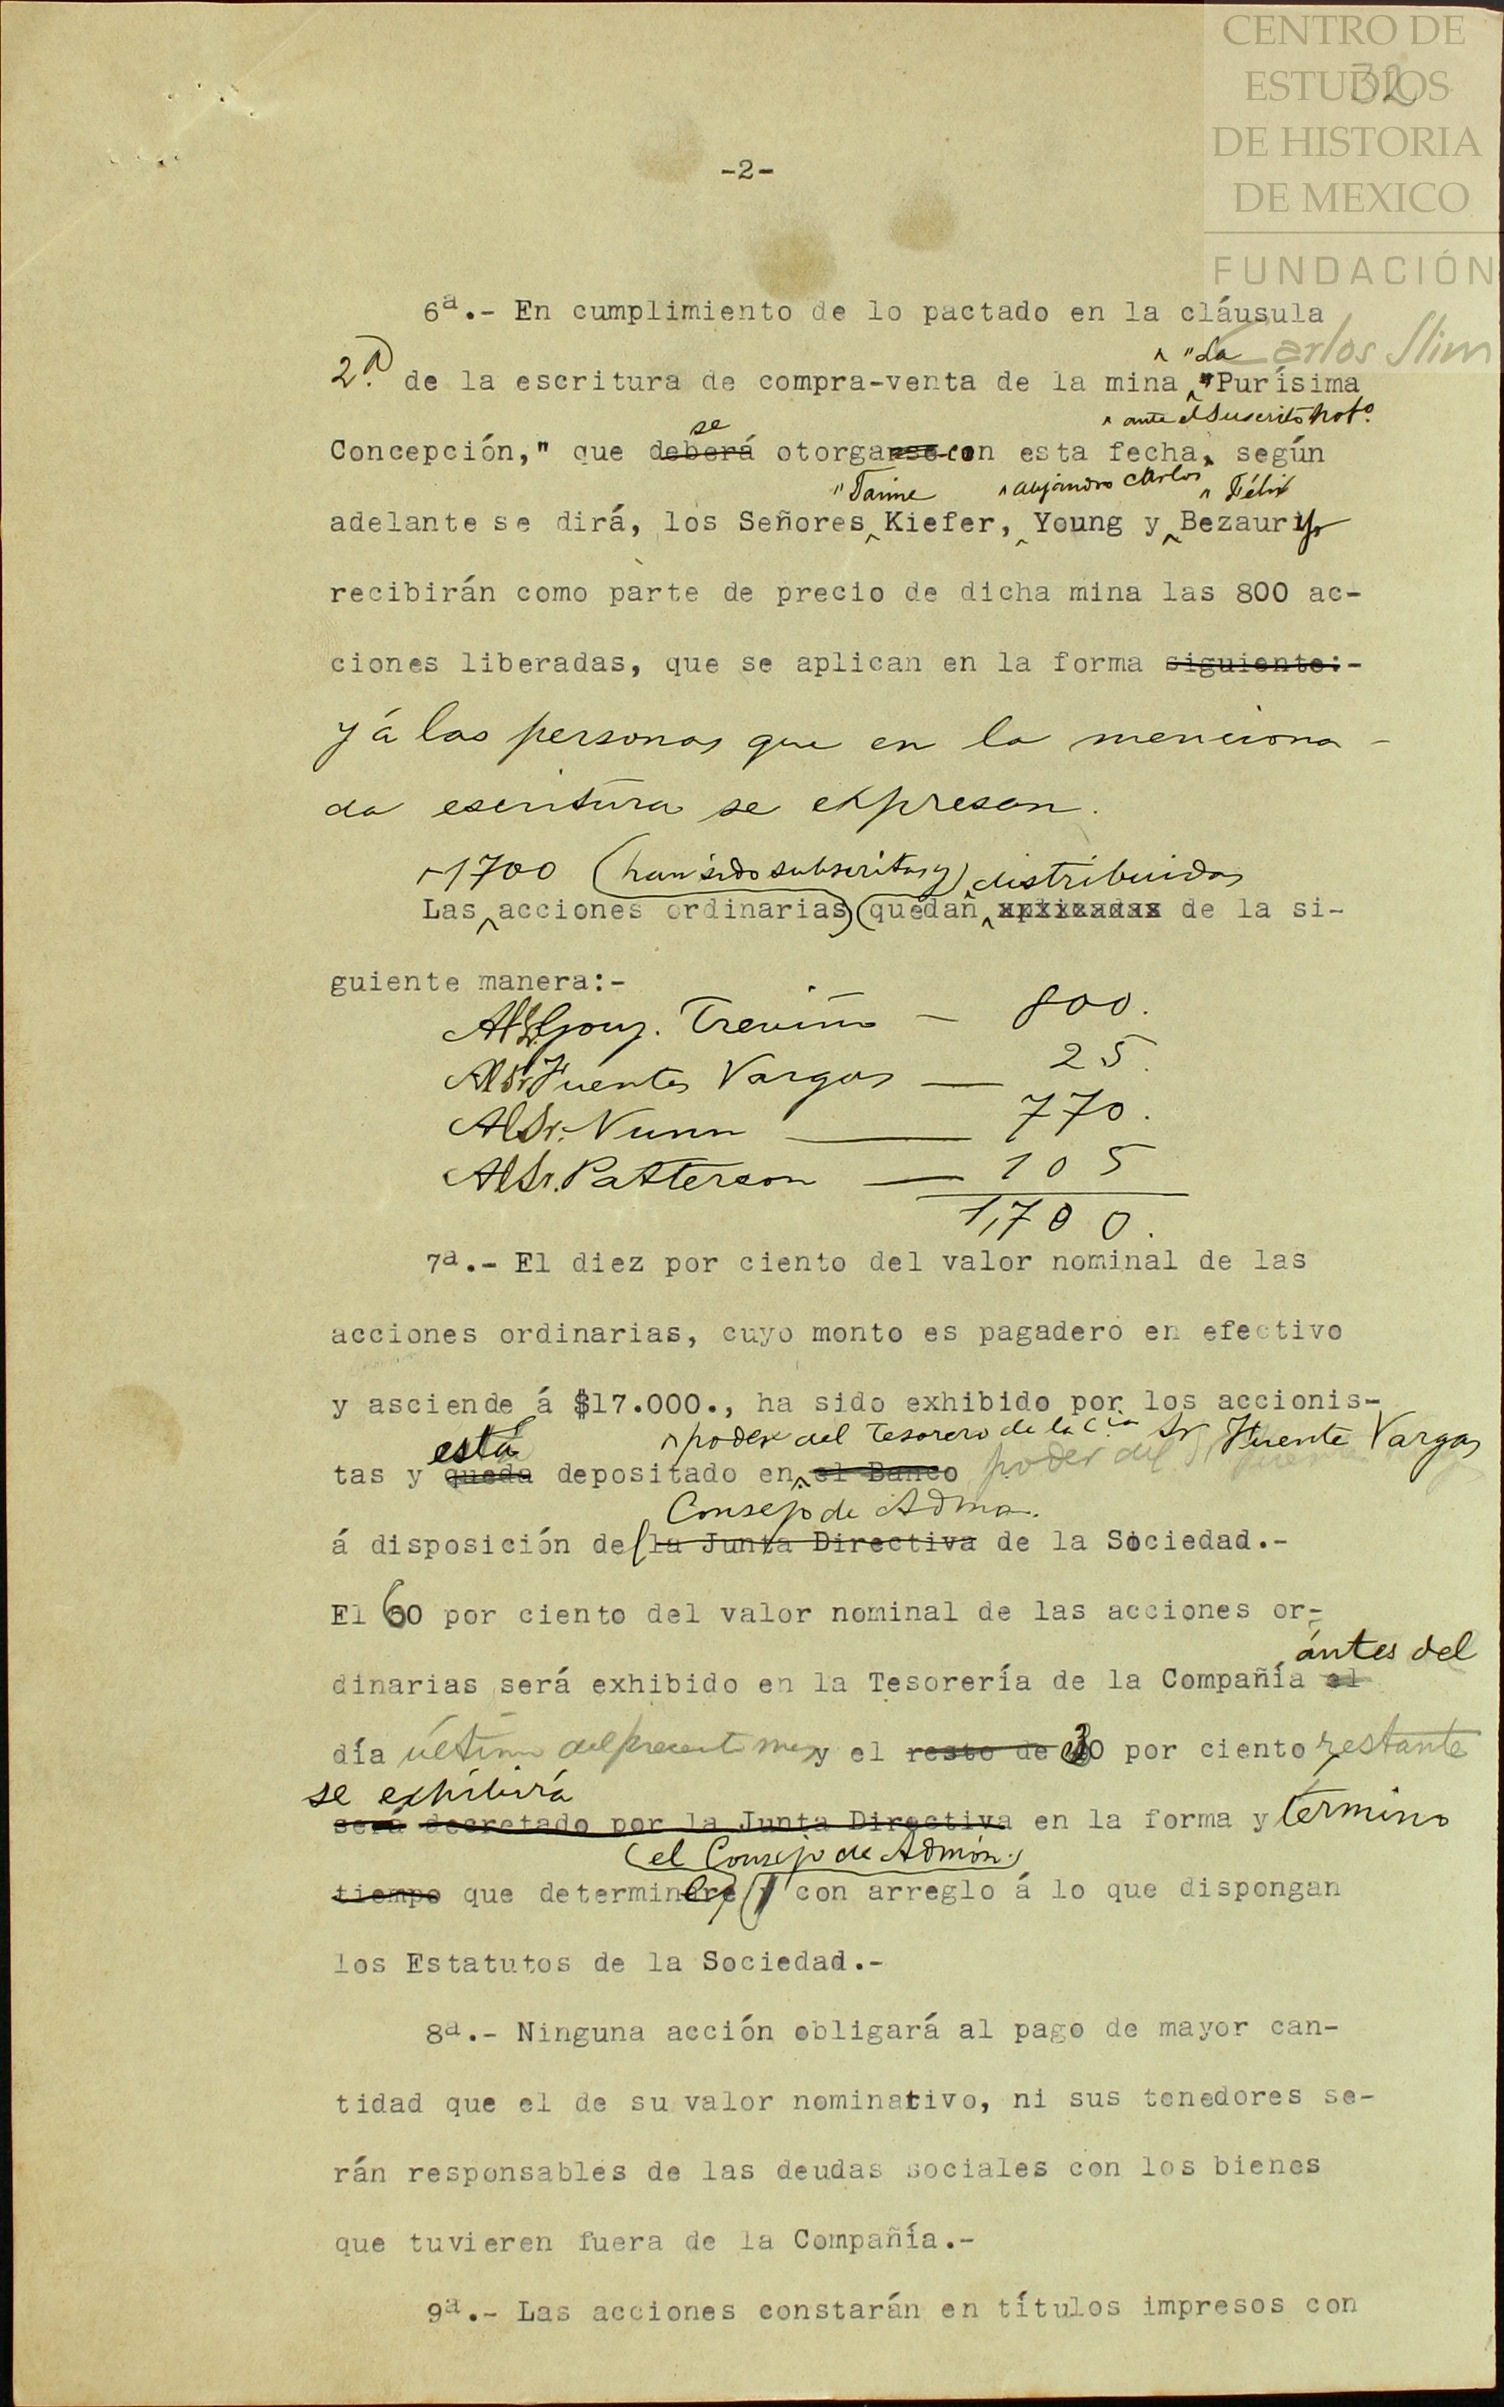 CENTRO DE
ESTUDIOS
DE HISTORIA
DE MEXICO
FUNDACIÓN
Carlos Slim
32
-2-
6ª.- En cumplimiento de lo pactado en la cláusula
^ "La
2ª. de la escritura de compra-venta de la mina "Purísima
se ^ ante el Suscrito Noto.
Concepción," que deberá otorgarse con esta fecha, según
"Jaime ^ Alejandro Carlos ^ Félix
adelante se dirá, los Señores Kiefer, Young y Bezaury
recibirán como parte de precio de dicha mina las 800 ac-
ciones liberadas, que se aplican en la forma siguiente:-
y á las personas que en la menciona-
da escritura se expresan.
1700 (han sido subscritas y) distribuidas
Las acciones ordinarias (quedan aplicadas de la si-
guiente manera:-
Al Sr. Gonz. Treviño — 800.
Al Sr. Fuentes Vargas — 25.
Al Sr. Nunn — 770.
Al Sr. Patterson — 105
1,700.
7ª.- El diez por ciento del valor nominal de las
acciones ordinarias, cuyo monto es pagadero en efectivo
y asciende á $17.000., ha sido exhibido por los accionis-
está ^ poder del Tesorero de la Cía Sr Fuente Vargas
tas y queda depositado en el Banco poder del Sr Fuente
Consejo de Admon.
á disposición de la Junta Directiva de la Sociedad.-
El 60 por ciento del valor nominal de las acciones or-
ántes del
dinarias será exhibido en la Tesorería de la Compañía el
día último del presente mes y el resto de 30 por ciento restante
se exhibirá
será decretado por la Junta Directiva en la forma y término
(el Consejo de Admón.)
tiempo que determine con arreglo á lo que dispongan
los Estatutos de la Sociedad.-
8ª.- Ninguna acción obligará al pago de mayor can-
tidad que el de su valor nominativo, ni sus tenedores se-
rán responsables de las deudas sociales con los bienes
que tuvieren fuera de la Compañía.-
9ª.- Las acciones constarán en títulos impresos con